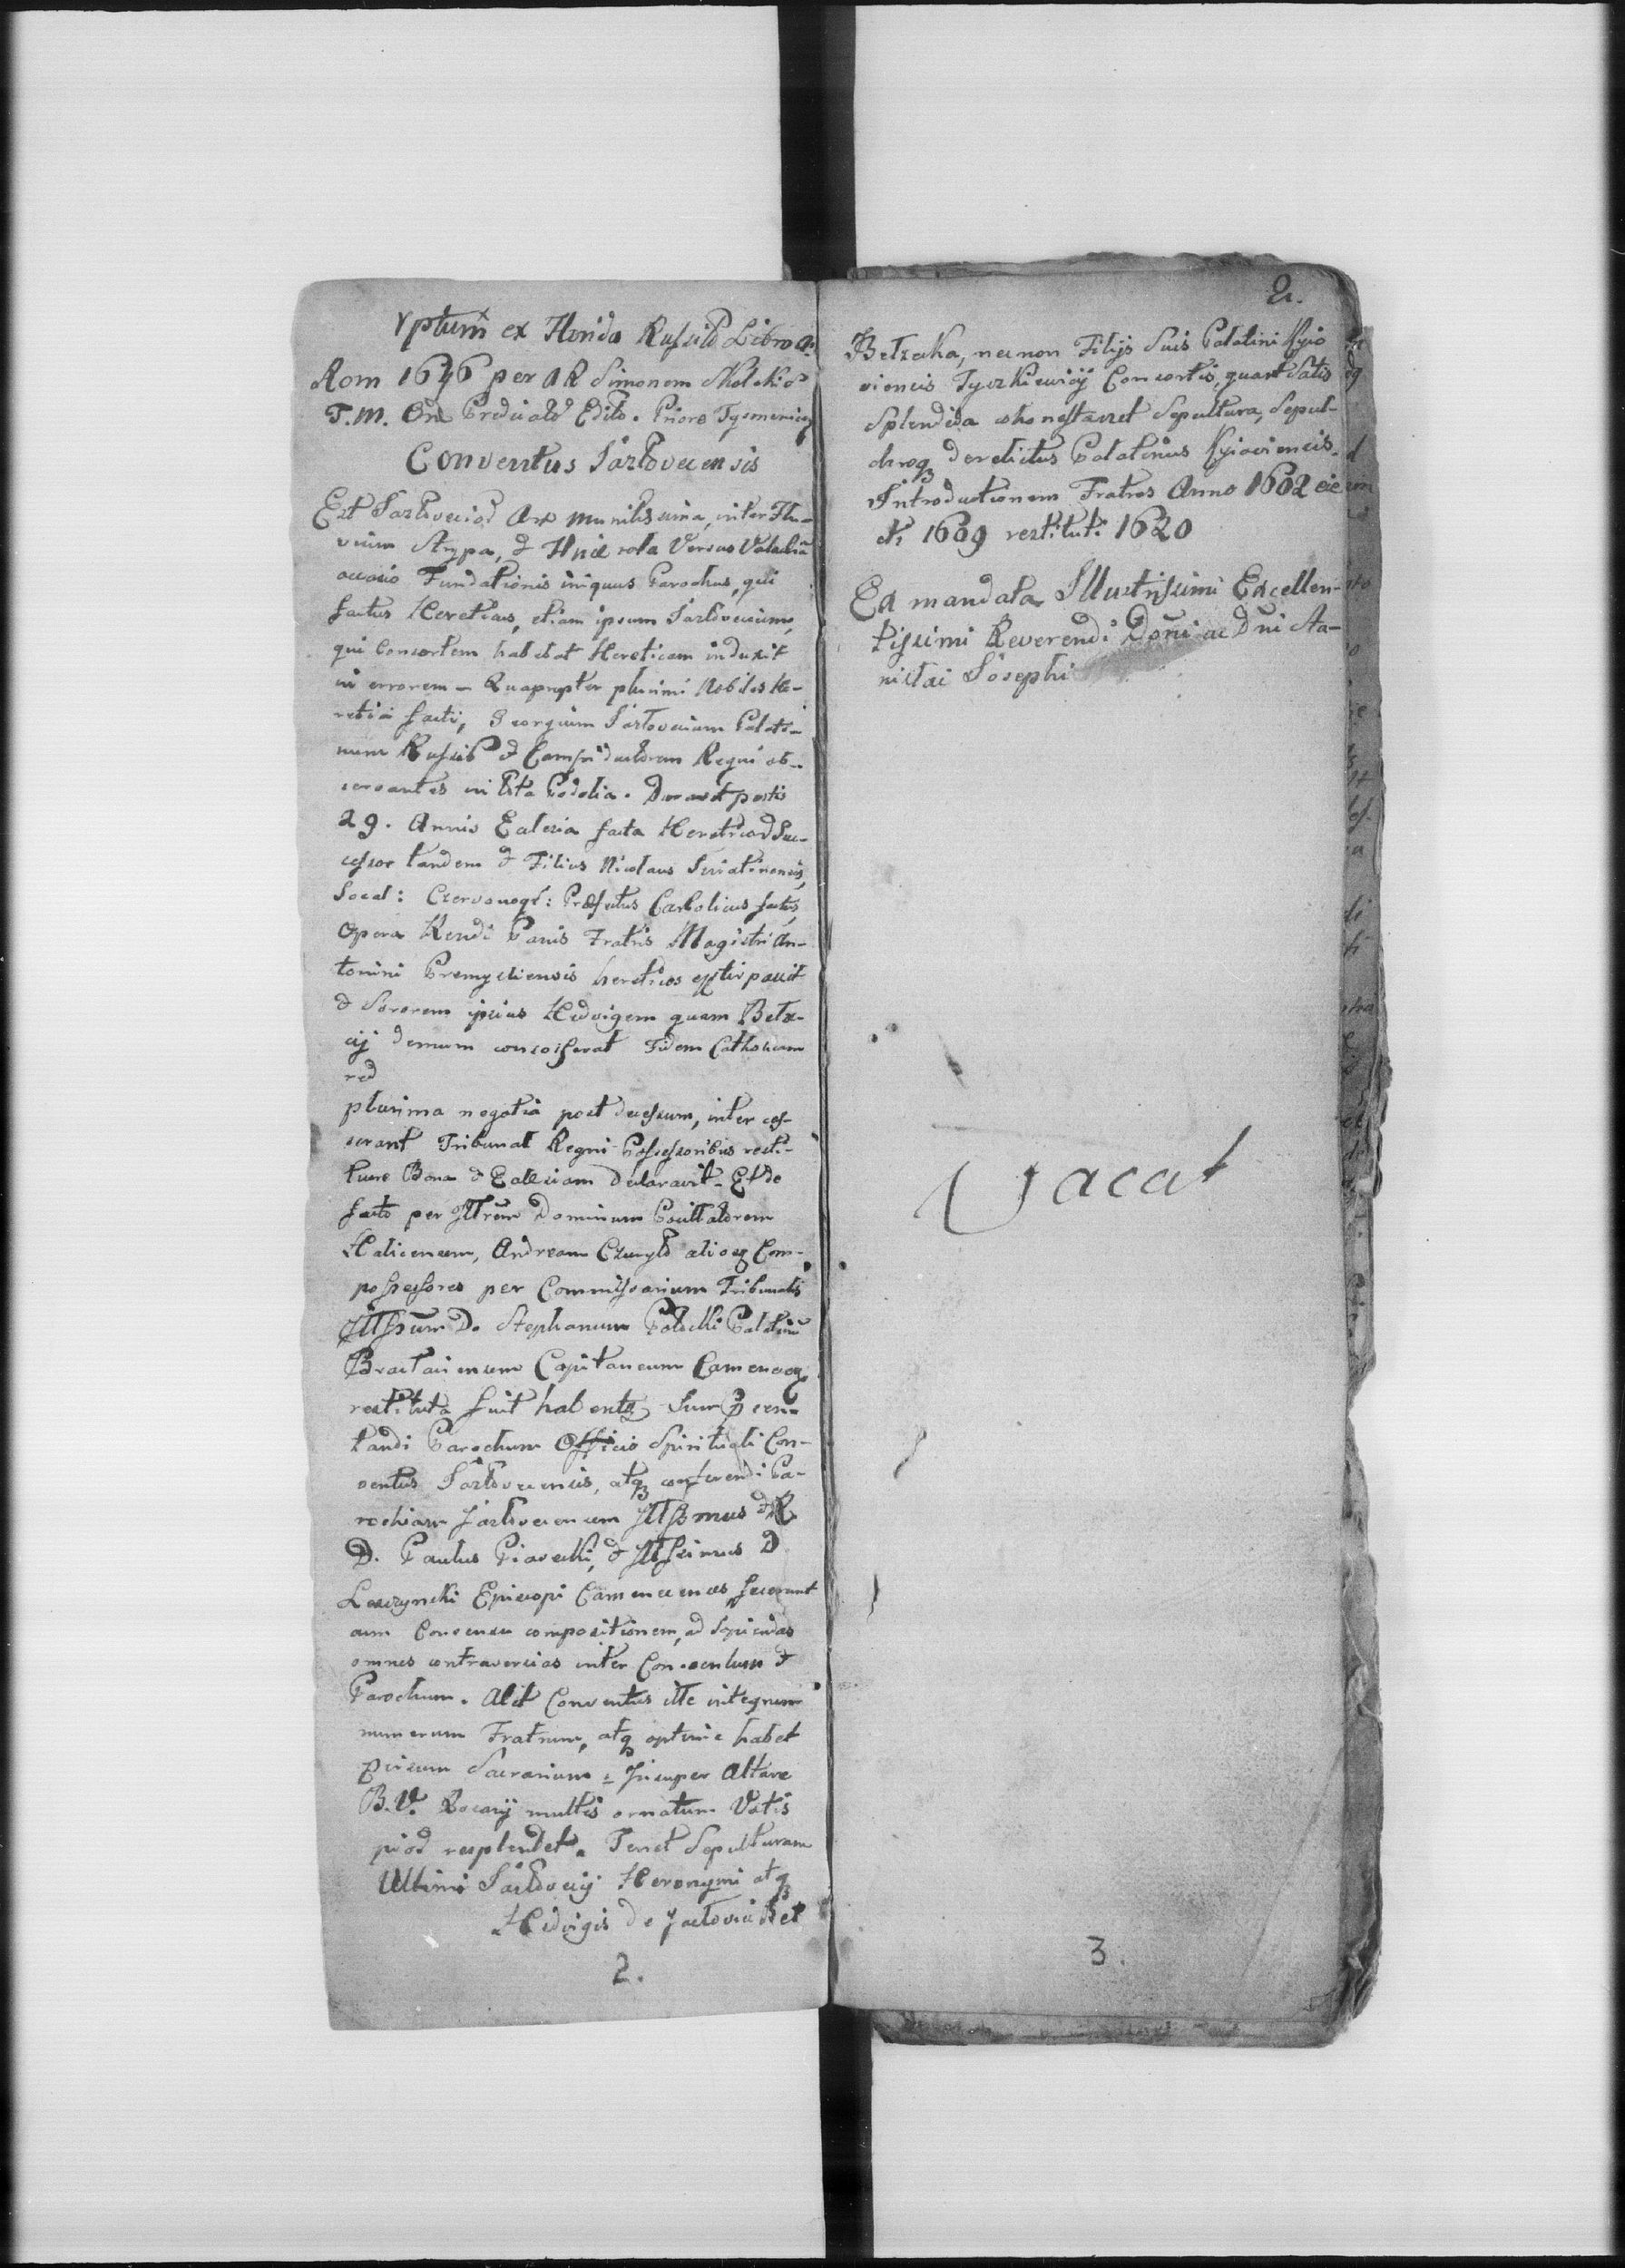 yptum ex Florida Russiæ Libro a:
Rom 1646 per A R Simonem Okolski S
T. M. Ord Prædicato Edito. Priore Tysmenicz
Conventus Jazlovecensis
Est Jazloveciæ Arx munitissima, inter Flu-
vium Strypa, & Hnie rota Versus Valachia
occasio Fundationis iniquus Parochus, qui
factus Hereticus, etiam ipsum Jazlovecium,
qui Consortem habebat Hereticam induxit
in errorem - Quapropter plurimi Nobiles He-
retici facti, Georgium Jazlovecium Palati-
num Russiæ & Campiductorem Regni ob-
servantes in ista Podolia. Duravit pestis
29. Annis Eclesia facta Hereticor Suc-
cessor tandem & Filius Nicolaus Sniatinensis,
Socal: Czervonogr: Præfectus Catholicus factus,
opera Rendi Patris Fratris Magistri An-
tonini Premysliensis hereticos extirpavit
& Sororem ipsius Hedvigem quam Belz-
cij demum Fidem Catholicam
red
plurima negotia post decessum, inter ces-
serant Tribunal Regni Possessoribus resti-
tuere Bona & Ecclesiam declaravit - Et de
facto per Illrem Dominum
Halicensem, Andream aliosq Com-
possessores per Commissarium Tribunalis
Illssum D. Stephanum Potocki Palatinu
Braclaviensem Capitaneum Camenecen
restituta fuit habentq Jus P sen-
tandi Parochum Officio Spirituali Con-
ventus Jazlovecensis, atq conferendi Pa-
rochiam Jazlovecensem Illssmus & R
D. Paulus Piasecki, & Illssimus D
Leszczynski Episcopi Camenecenses, fecerunt
cum Consensu compositionem, ad sopiendas
omnes contraversias inter Conventum &
Parochum. Alit Conventus iste integrum
numerum Fratrum, atq optime habet
Sacrarium - Insuper Altare
B. V. Rosarij multis ornatum Votis
resplendet. Tenet Sepulturam
Ultimi Jazlovecij Heronymi atq
Hedvigis de Jazlovice Bel
2.
2.
Belzecka, necnon Filijs Suis Palatini Kyio
viensis Tyszkiewicij Consortis, quam Satis
Splendida cohonestavit Sepultura, Sepul-
chroq derelictus Palatinus Kyioviensis.
Introductionem Fratres Anno 1602 eie
cti 1609 restituti 1620
Ex mandata Illustrissimi Excellen-
tissimi Reverendi Domi ac Dni Sta-
nislai Josephi
Vacat
3.